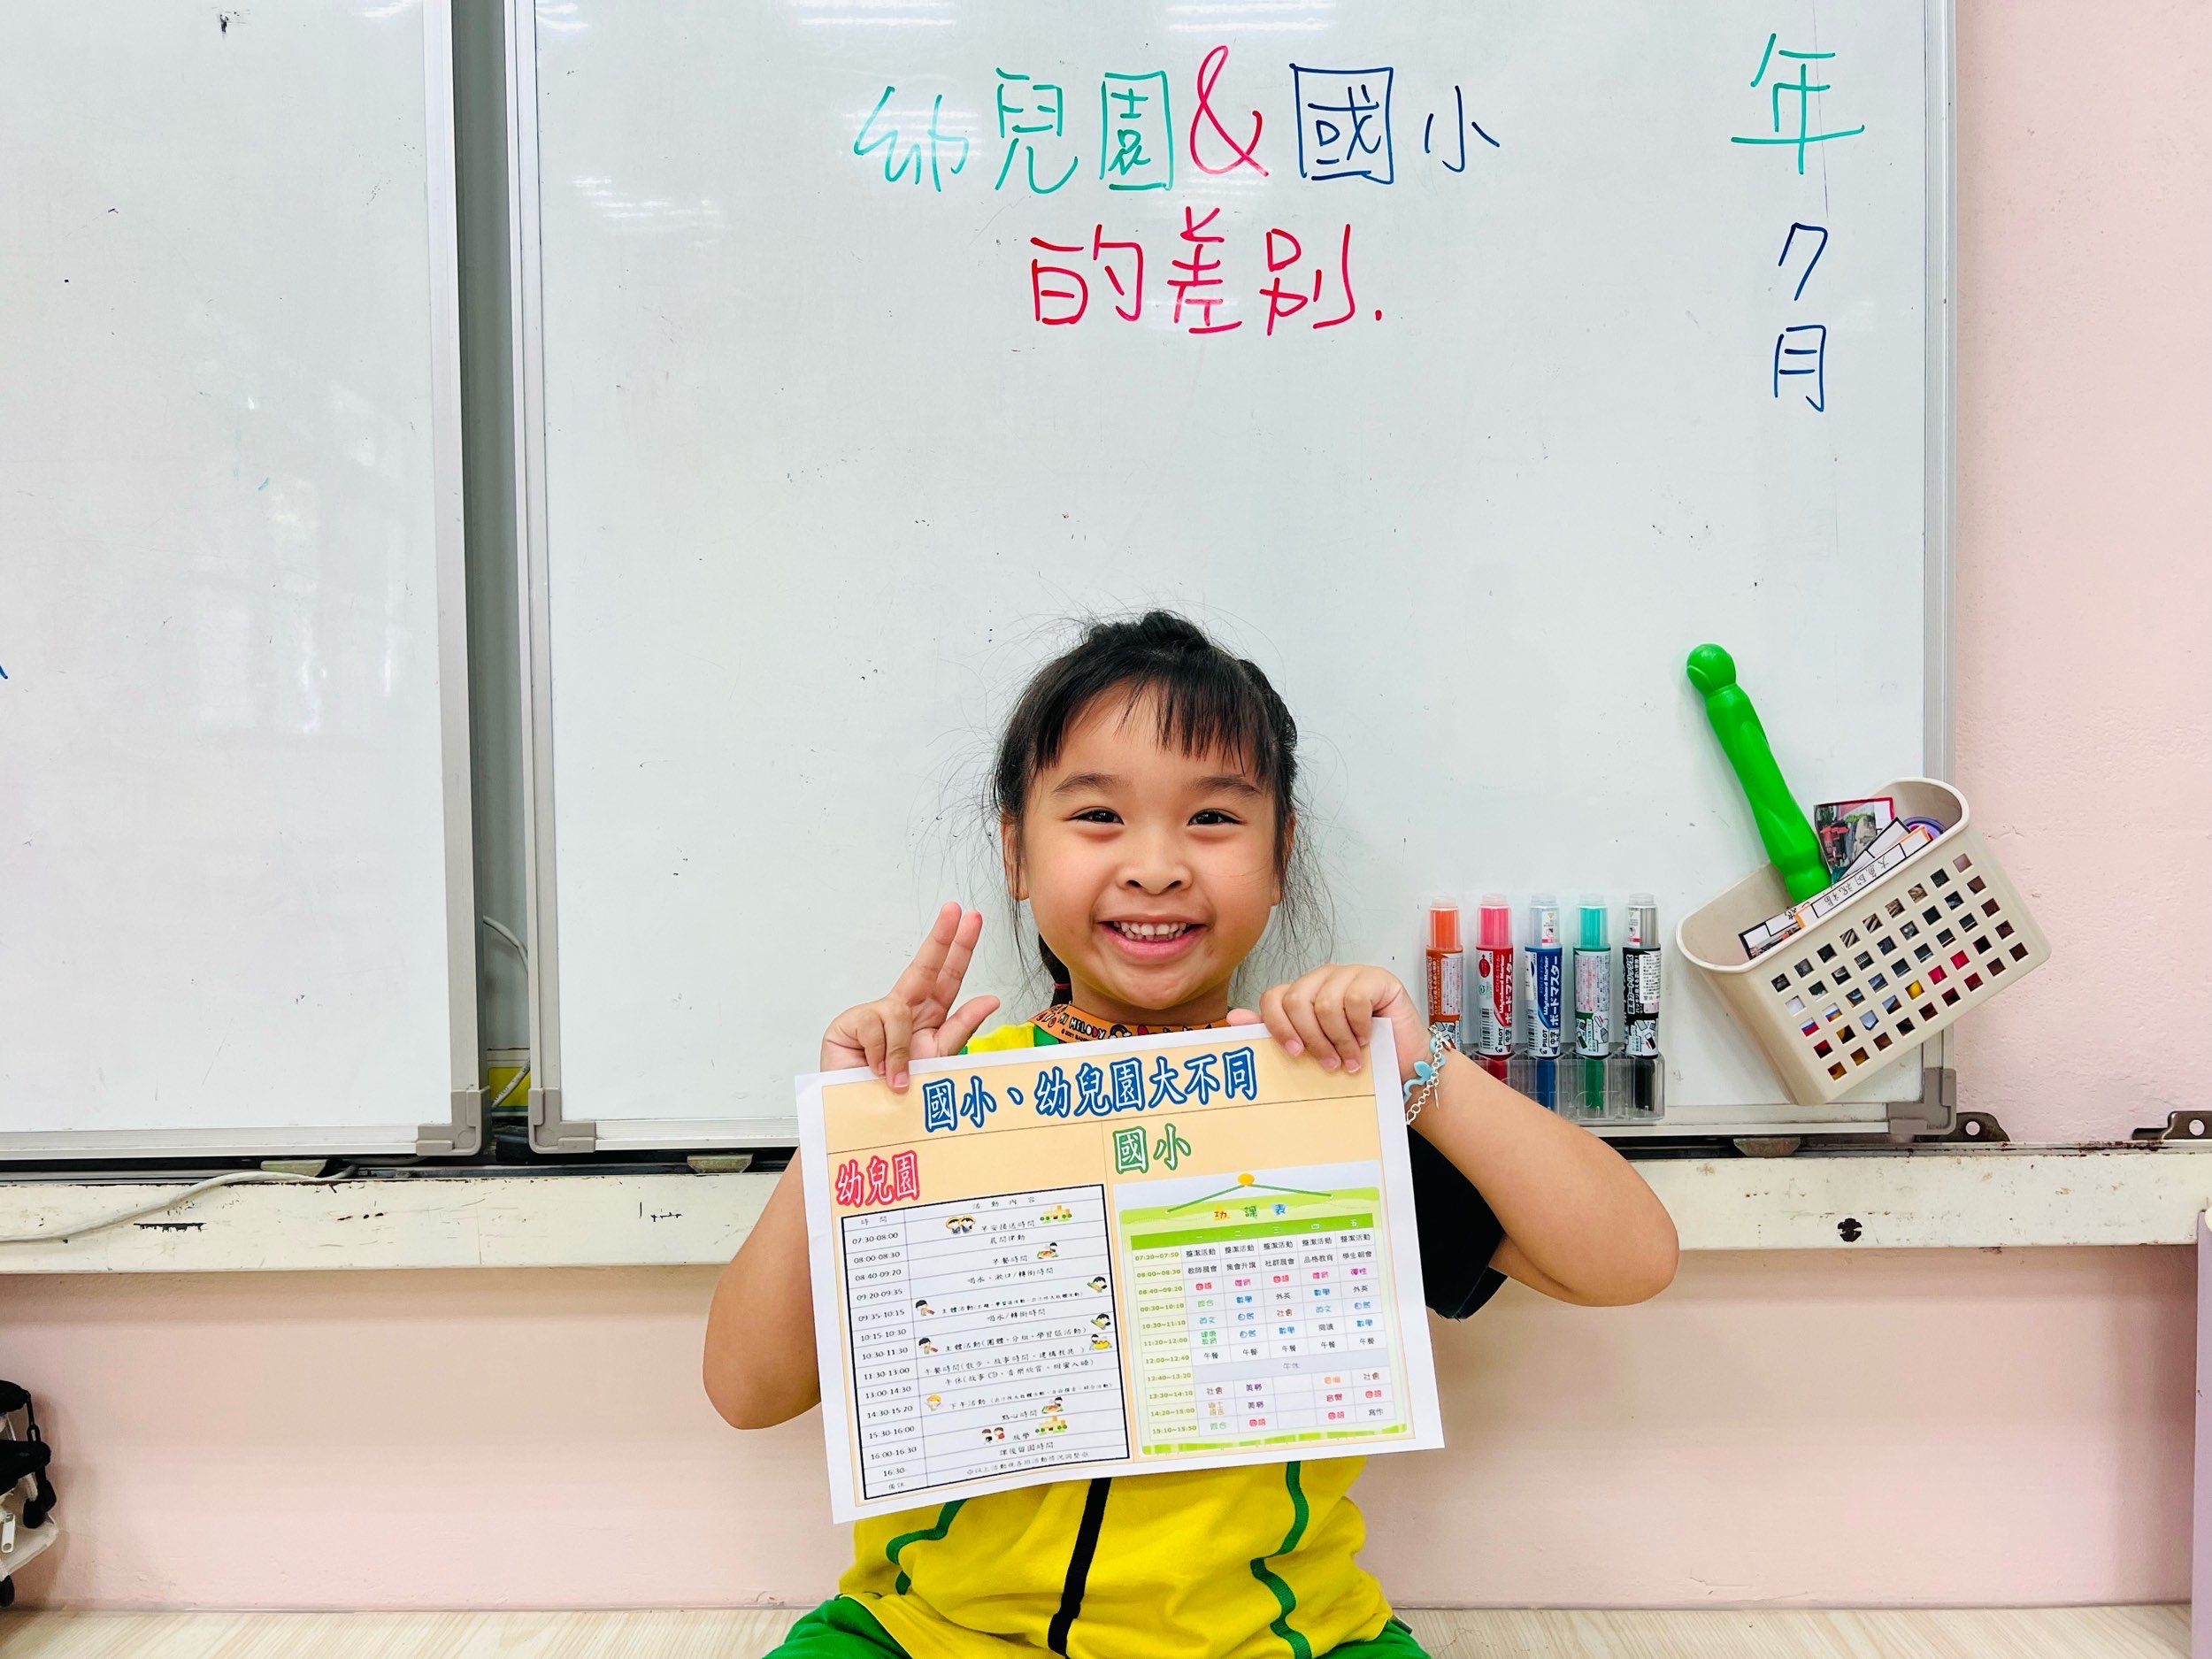 幼兒園&國小
的差別.
年
7
月
MY MELODY
國小、幼兒園大不同
幼兒園
國小
時間 活動內容
07:30-08:00 早安接送時間
08:00-08:30 晨間律動
08:40-09:20 早餐時間
09:20-09:35 喝水、漱口/轉銜時間
09:35-10:15
10:15-10:30 喝水/轉銜時間
10:30-11:30 主題活動(團體、分組、學習區活動)
11:30-13:00 午餐時間(散步、故事時間、建構教具)
13:00-14:30 午休(故事CD、音樂欣賞、甜蜜入睡)
14:30-15:20 下午活動
15:30-16:00 點心時間
16:00-16:30 放學
16:30- 課後留園時間
備註
功課表
一 二 三 四 五
07:20~07:50 整潔活動 整潔活動 整潔活動 整潔活動 整潔活動
08:00~08:30 教師晨會 集會升旗 社群晨會 品格教育 學生朝會
08:40~09:20 國語 體育 國語 體育 彈性
09:30~10:10 綜合 數學 外英 數學 外英
10:30~11:10 英文 自然 社會 英文 自然
11:20~12:00 健康 自然 數學 閱讀 數學
12:00~12:40 午餐 午餐 午餐 午餐 午餐
12:40~13:20 午休
13:30~14:10 社會 美勞 社會
14:20~15:00 美勞 音樂 國語
15:10~15:50 綜合 國語 國語 寫作
Whiteboard Marker
ボードマスター
PILOT
中字